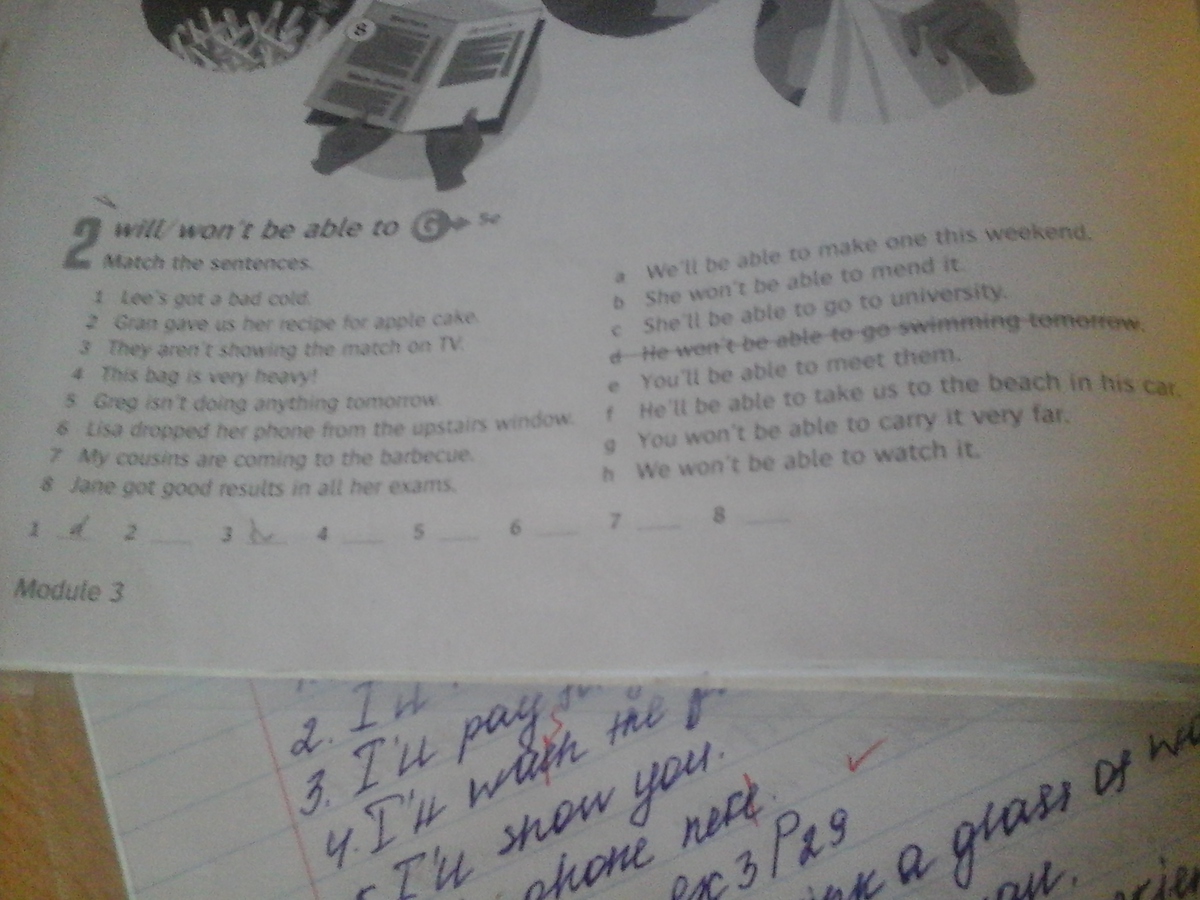 8
2 will/won't be able to G 5e
Match the sentences.
1 Lee's got a bad cold.
2 Gran gave us her recipe for apple cake.
3 They aren't showing the match on TV.
4 This bag is very heavy!
5 Greg isn't doing anything tomorrow.
6 Lisa dropped her phone from the upstairs window.
7 My cousins are coming to the barbecue.
8 Jane got good results in all her exams.
a We'll be able to make one this weekend.
b She won't be able to mend it.
c She'll be able to go to university.
d He won't be able to go swimming tomorrow.
e You'll be able to meet them.
f He'll be able to take us to the beach in his car.
g You won't be able to carry it very far.
h We won't be able to watch it.
1 d 2 ___ 3 ___ 4 ___ 5 ___ 6 ___ 7 ___ 8 ___
Module 3
2. I'll
3. I'll pay
4. I'll the
I'll show you.
phone
ex 3 P29
a glass of